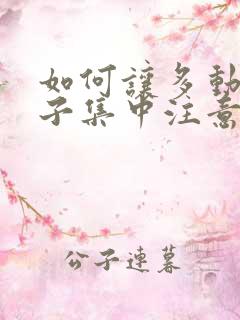 如何讓多動
子集中注意
公子連暮